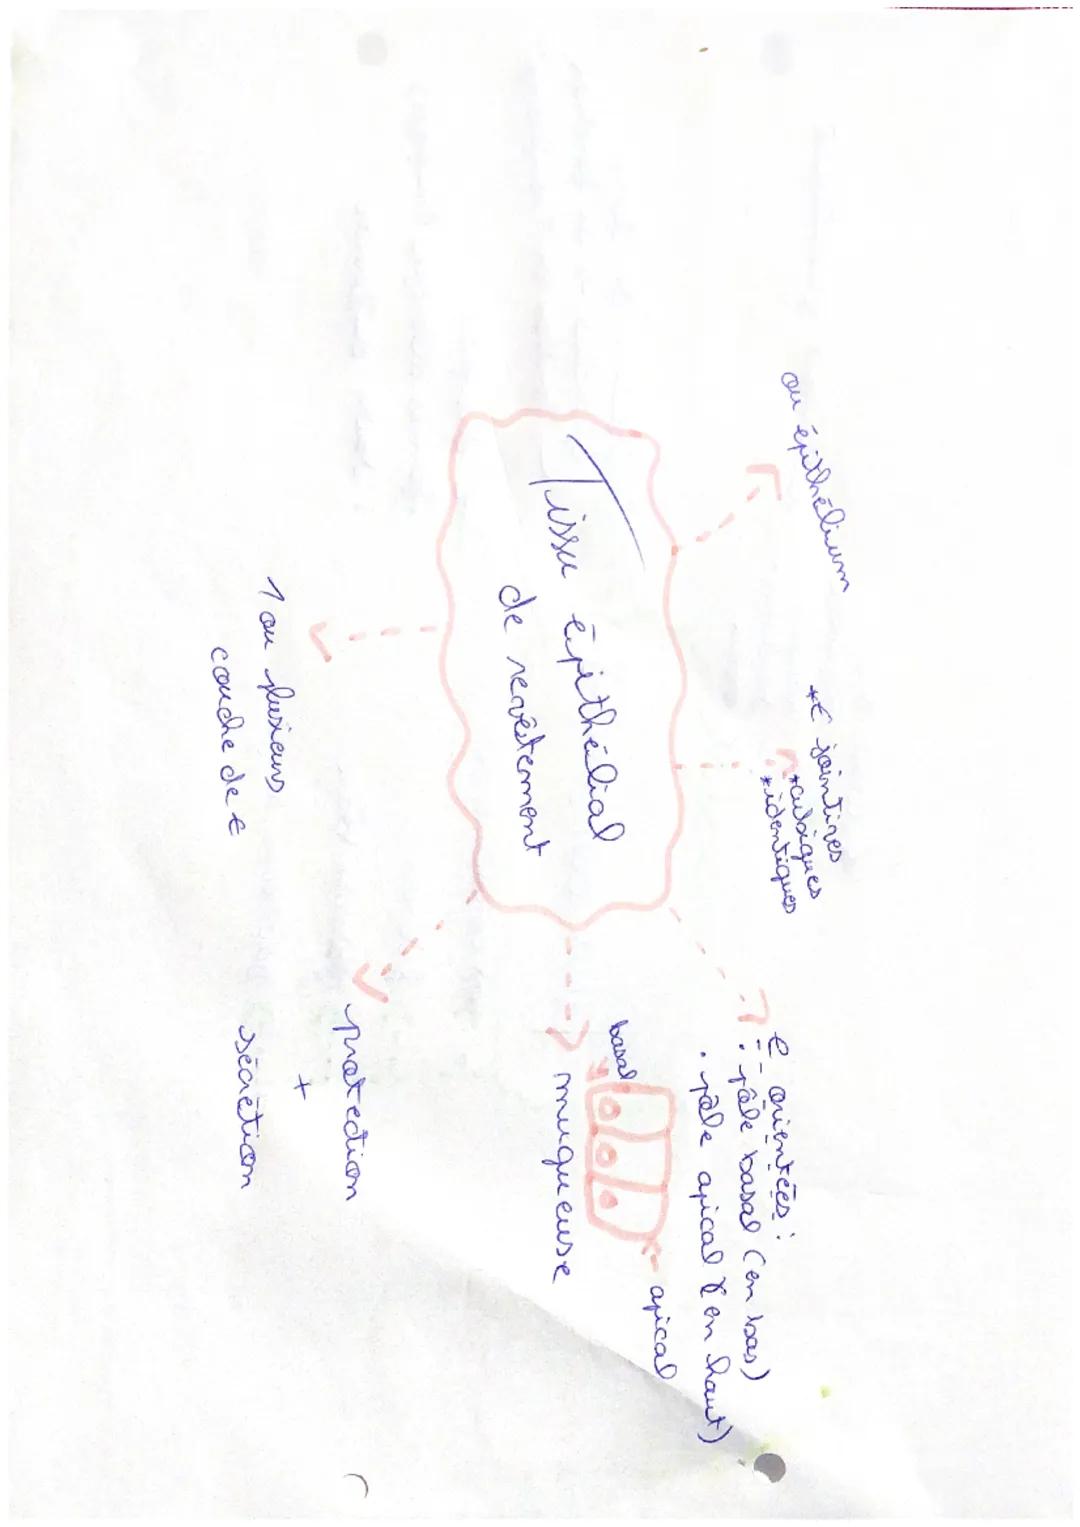 ou épithélium
*€ jointives
*cubiques
*identiques
€ orientées :
. pôle basal (en bas)
. pôle apical (en haut)
Tissu épithélial
de revêtement
basal
apical
muqueuse
1 ou plusieurs
couche de €
protection
+
sécrétion